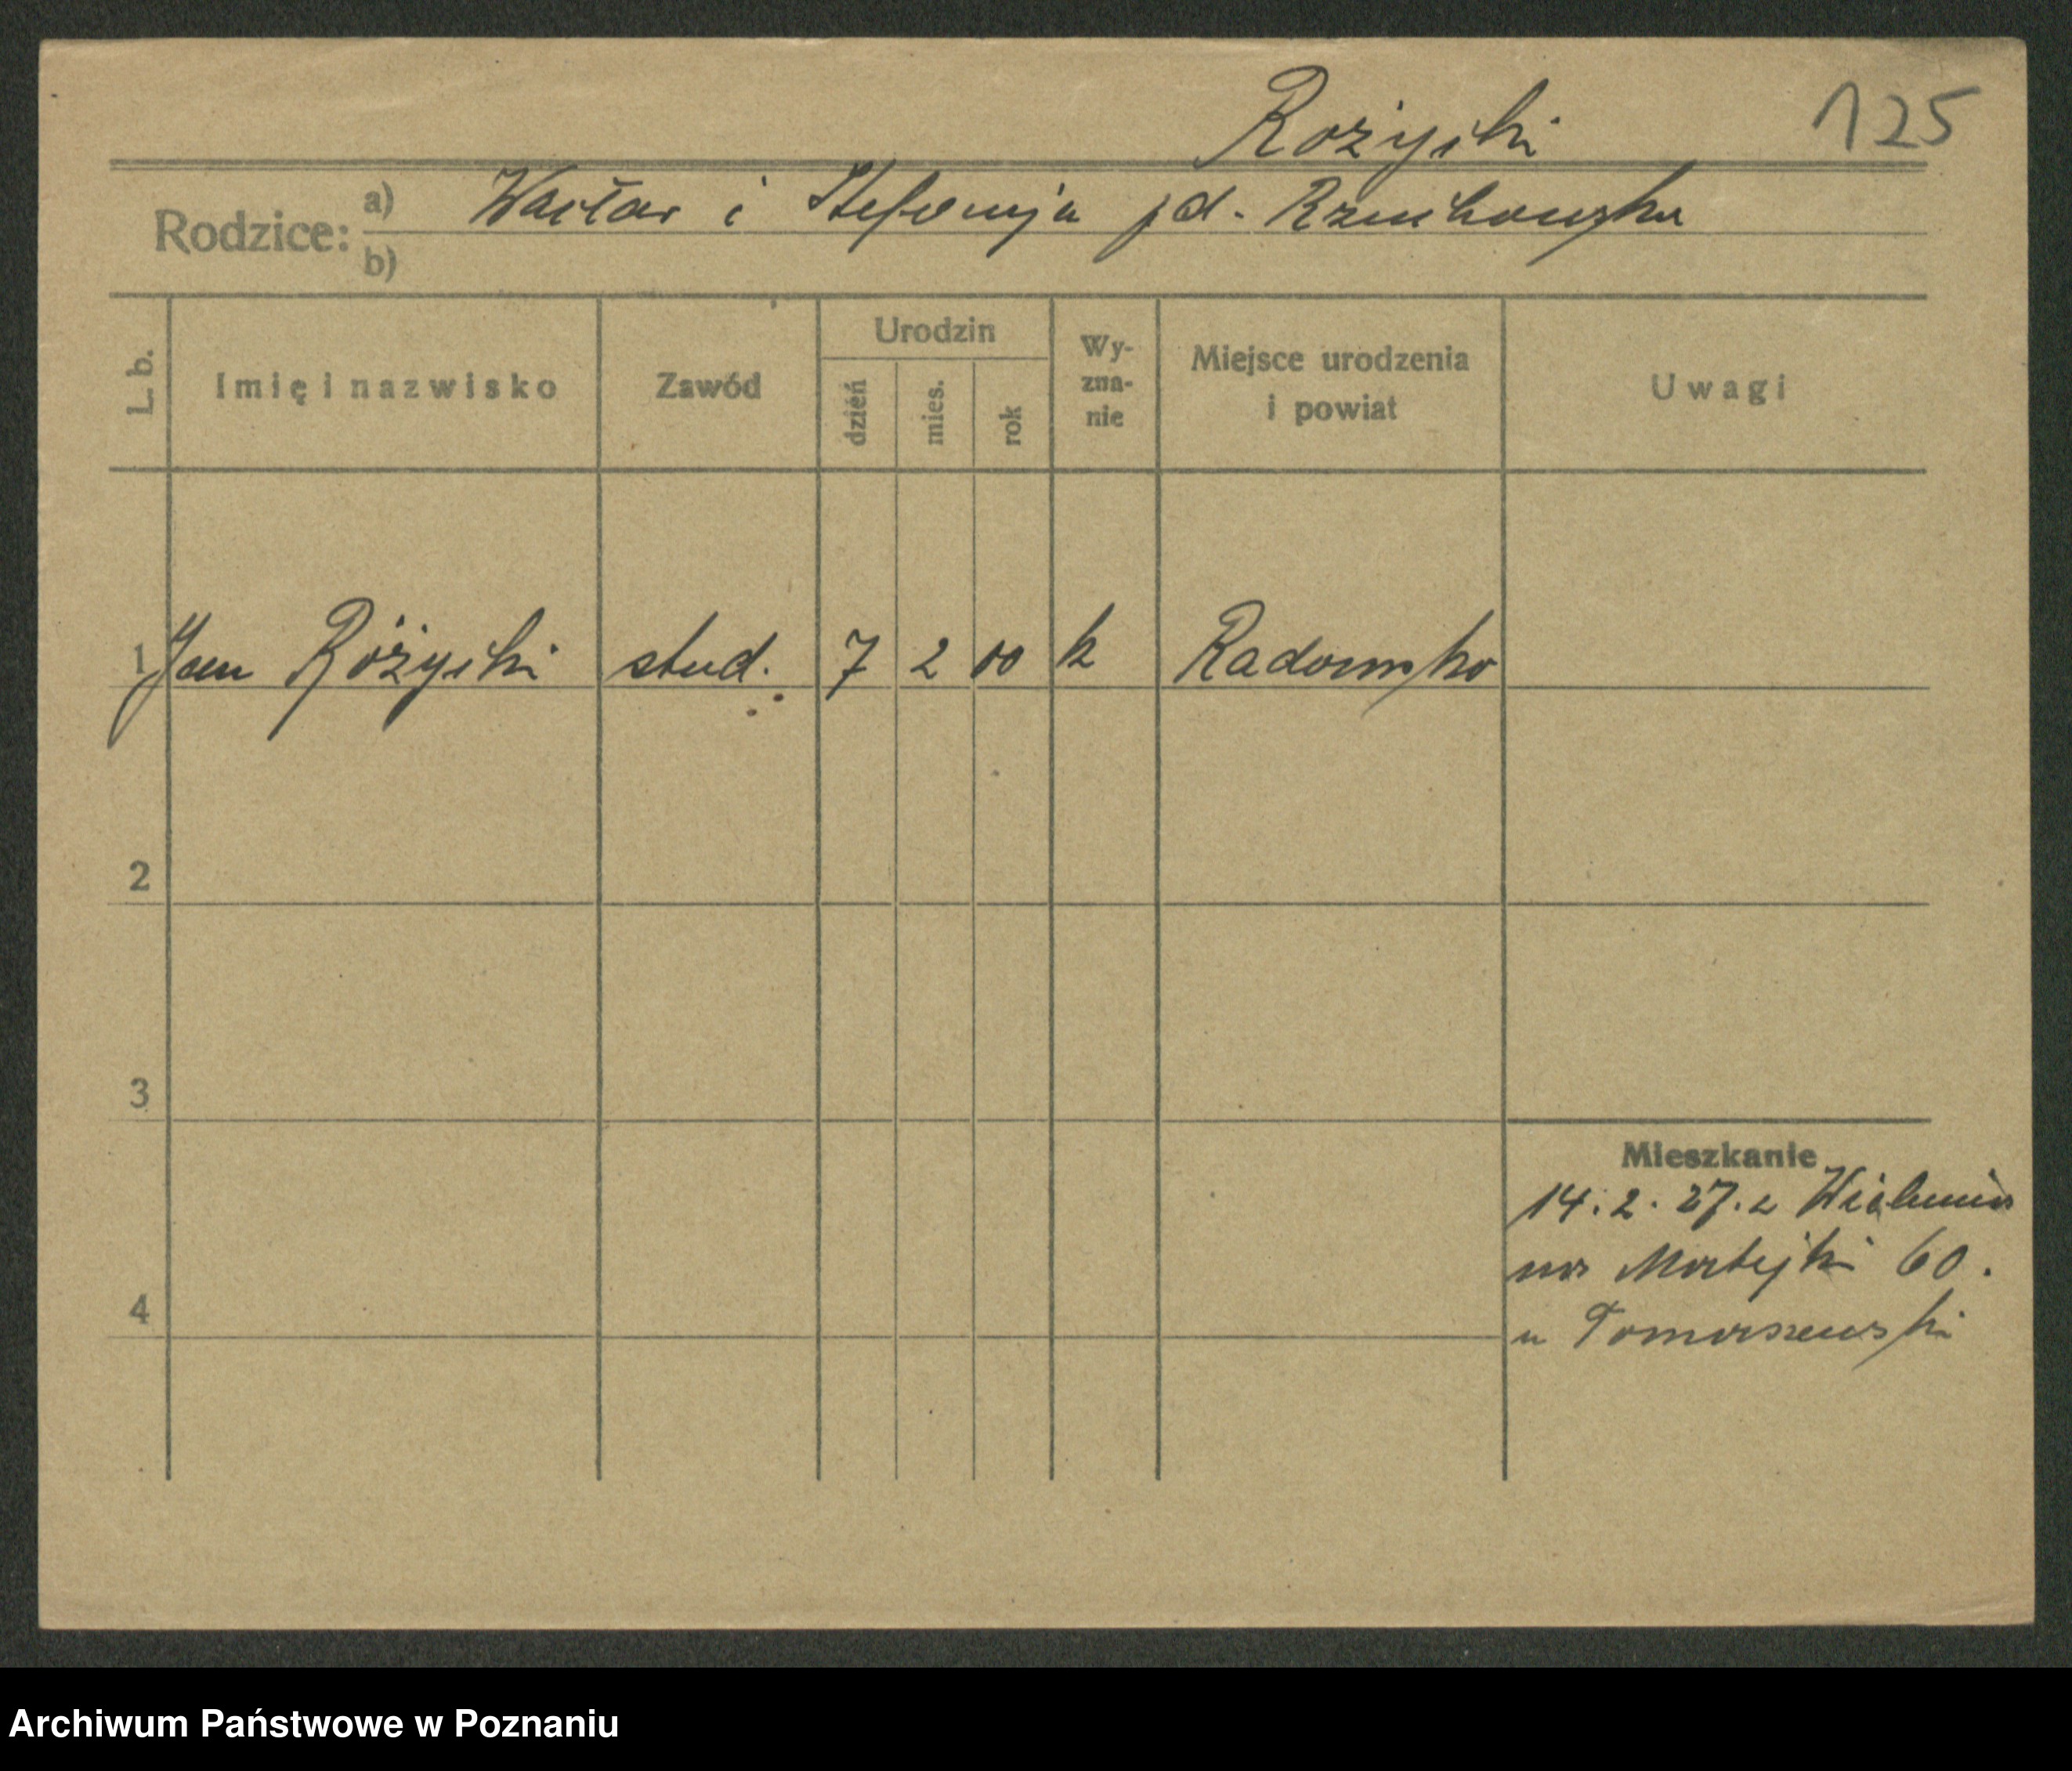 Rożycki 125
Rodzice: a) Wacław i Stefanja zd. Rzuchowska
b)
L. b. Imię i nazwisko Zawód Urodzin dzień mies. rok Wyznanie Miejsce urodzenia i powiat Uwagi
1 Jan Różycki stud. 7 2 00 k Radomsko
2
3
Mieszkanie
14. 2. 27. z Wielunia
na Matejki 60.
4
u Tomaszewski
Archiwum Państwowe w Poznaniu